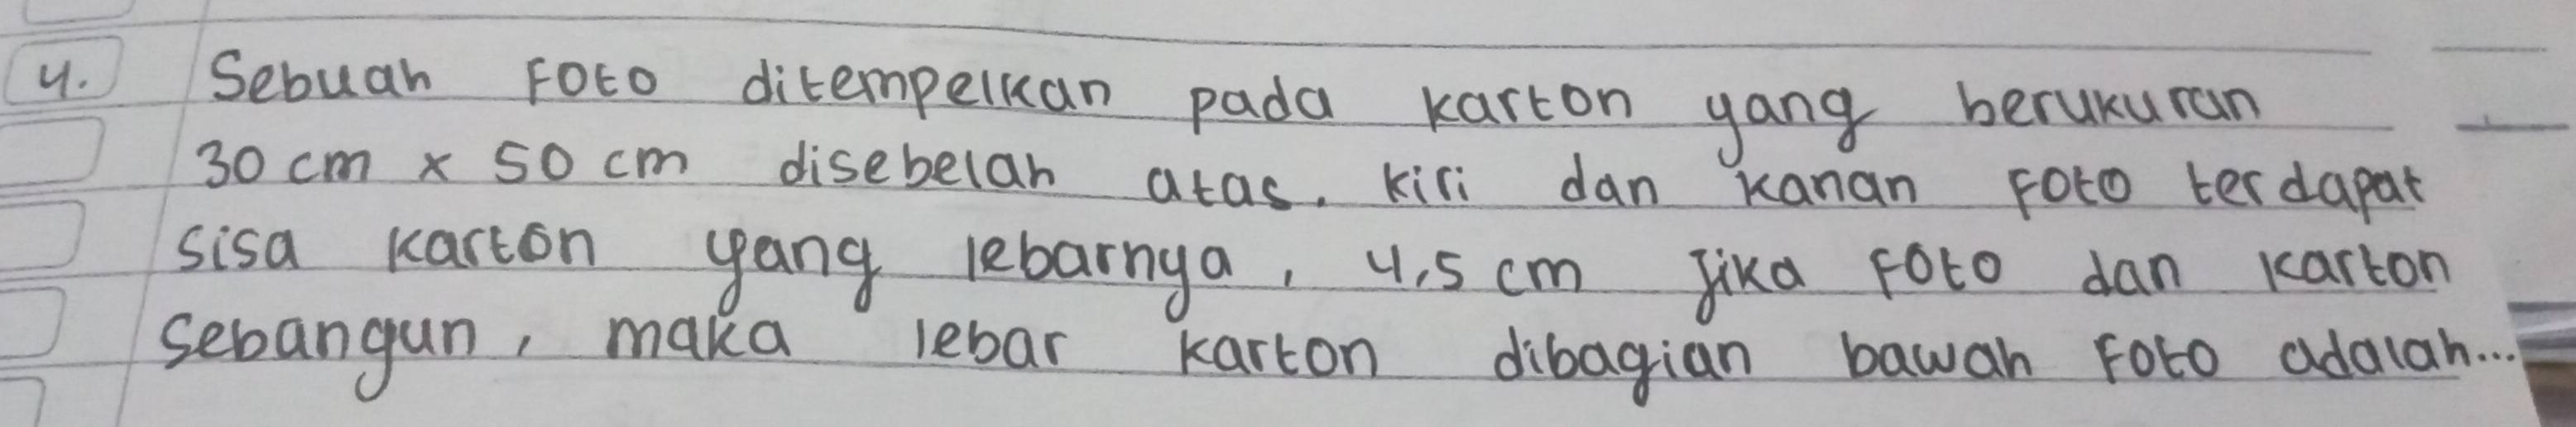 4. Sebuah Foto ditempelkan pada karton yang berukuran
30 cm x 50 cm disebelah atas. kiri dan kanan Foto terdapat
sisa karton yang lebarnya, 4,5 cm Jika Foto dan karton
Sebangun, maka lebar karton dibagian bawah Foto adalah...